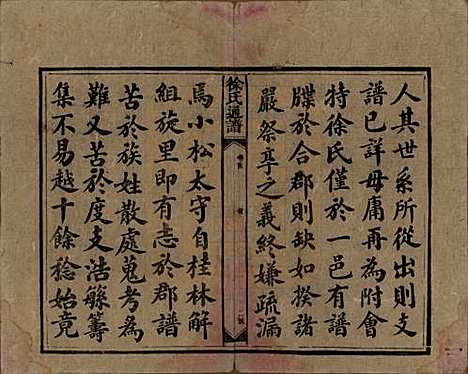 人其世系所從出則支
譜已詳毋庸再為附會
特徐氏僅於一邑有譜
牒於合郡則缺如揆諸
嚴祭享之義終嫌疏漏
徐氏通譜
馬小松太守自桂林解
組旋里即有志於郡譜
苦於族姓散處蒐考為
難又苦於度支浩繁籌
集不易越十餘稔始竟